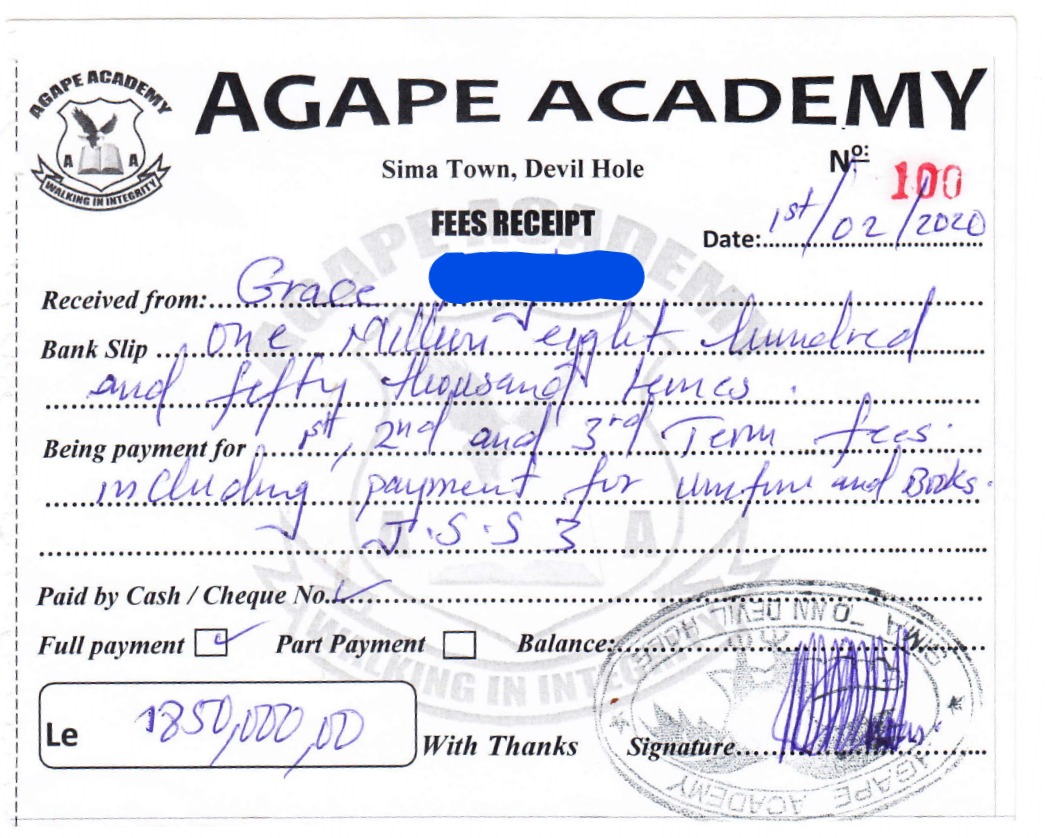 AGAPE ACADEMY
WALKING IN INTEGRITY
A A
AGAPE ACADEMY
Sima Town, Devil Hole
Nº: 100
FEES RECEIPT
Date: 1st/02/2020
Received from: Grace
Bank Slip One Million eight hundred
and fifty thousand leones.
Being payment for 1st, 2nd and 3rd Term fees.
including payment for uniform and Books.
J.S.S 3
Paid by Cash / Cheque No.
Full payment ✓ Part Payment Balance:
Le 1850,000,00
With Thanks Signature
AGAPE ACADEMY
WALKING IN INTEGRITY
A A
SIMA TOWN DEVIL HOLE
AGAPE ACADEMY